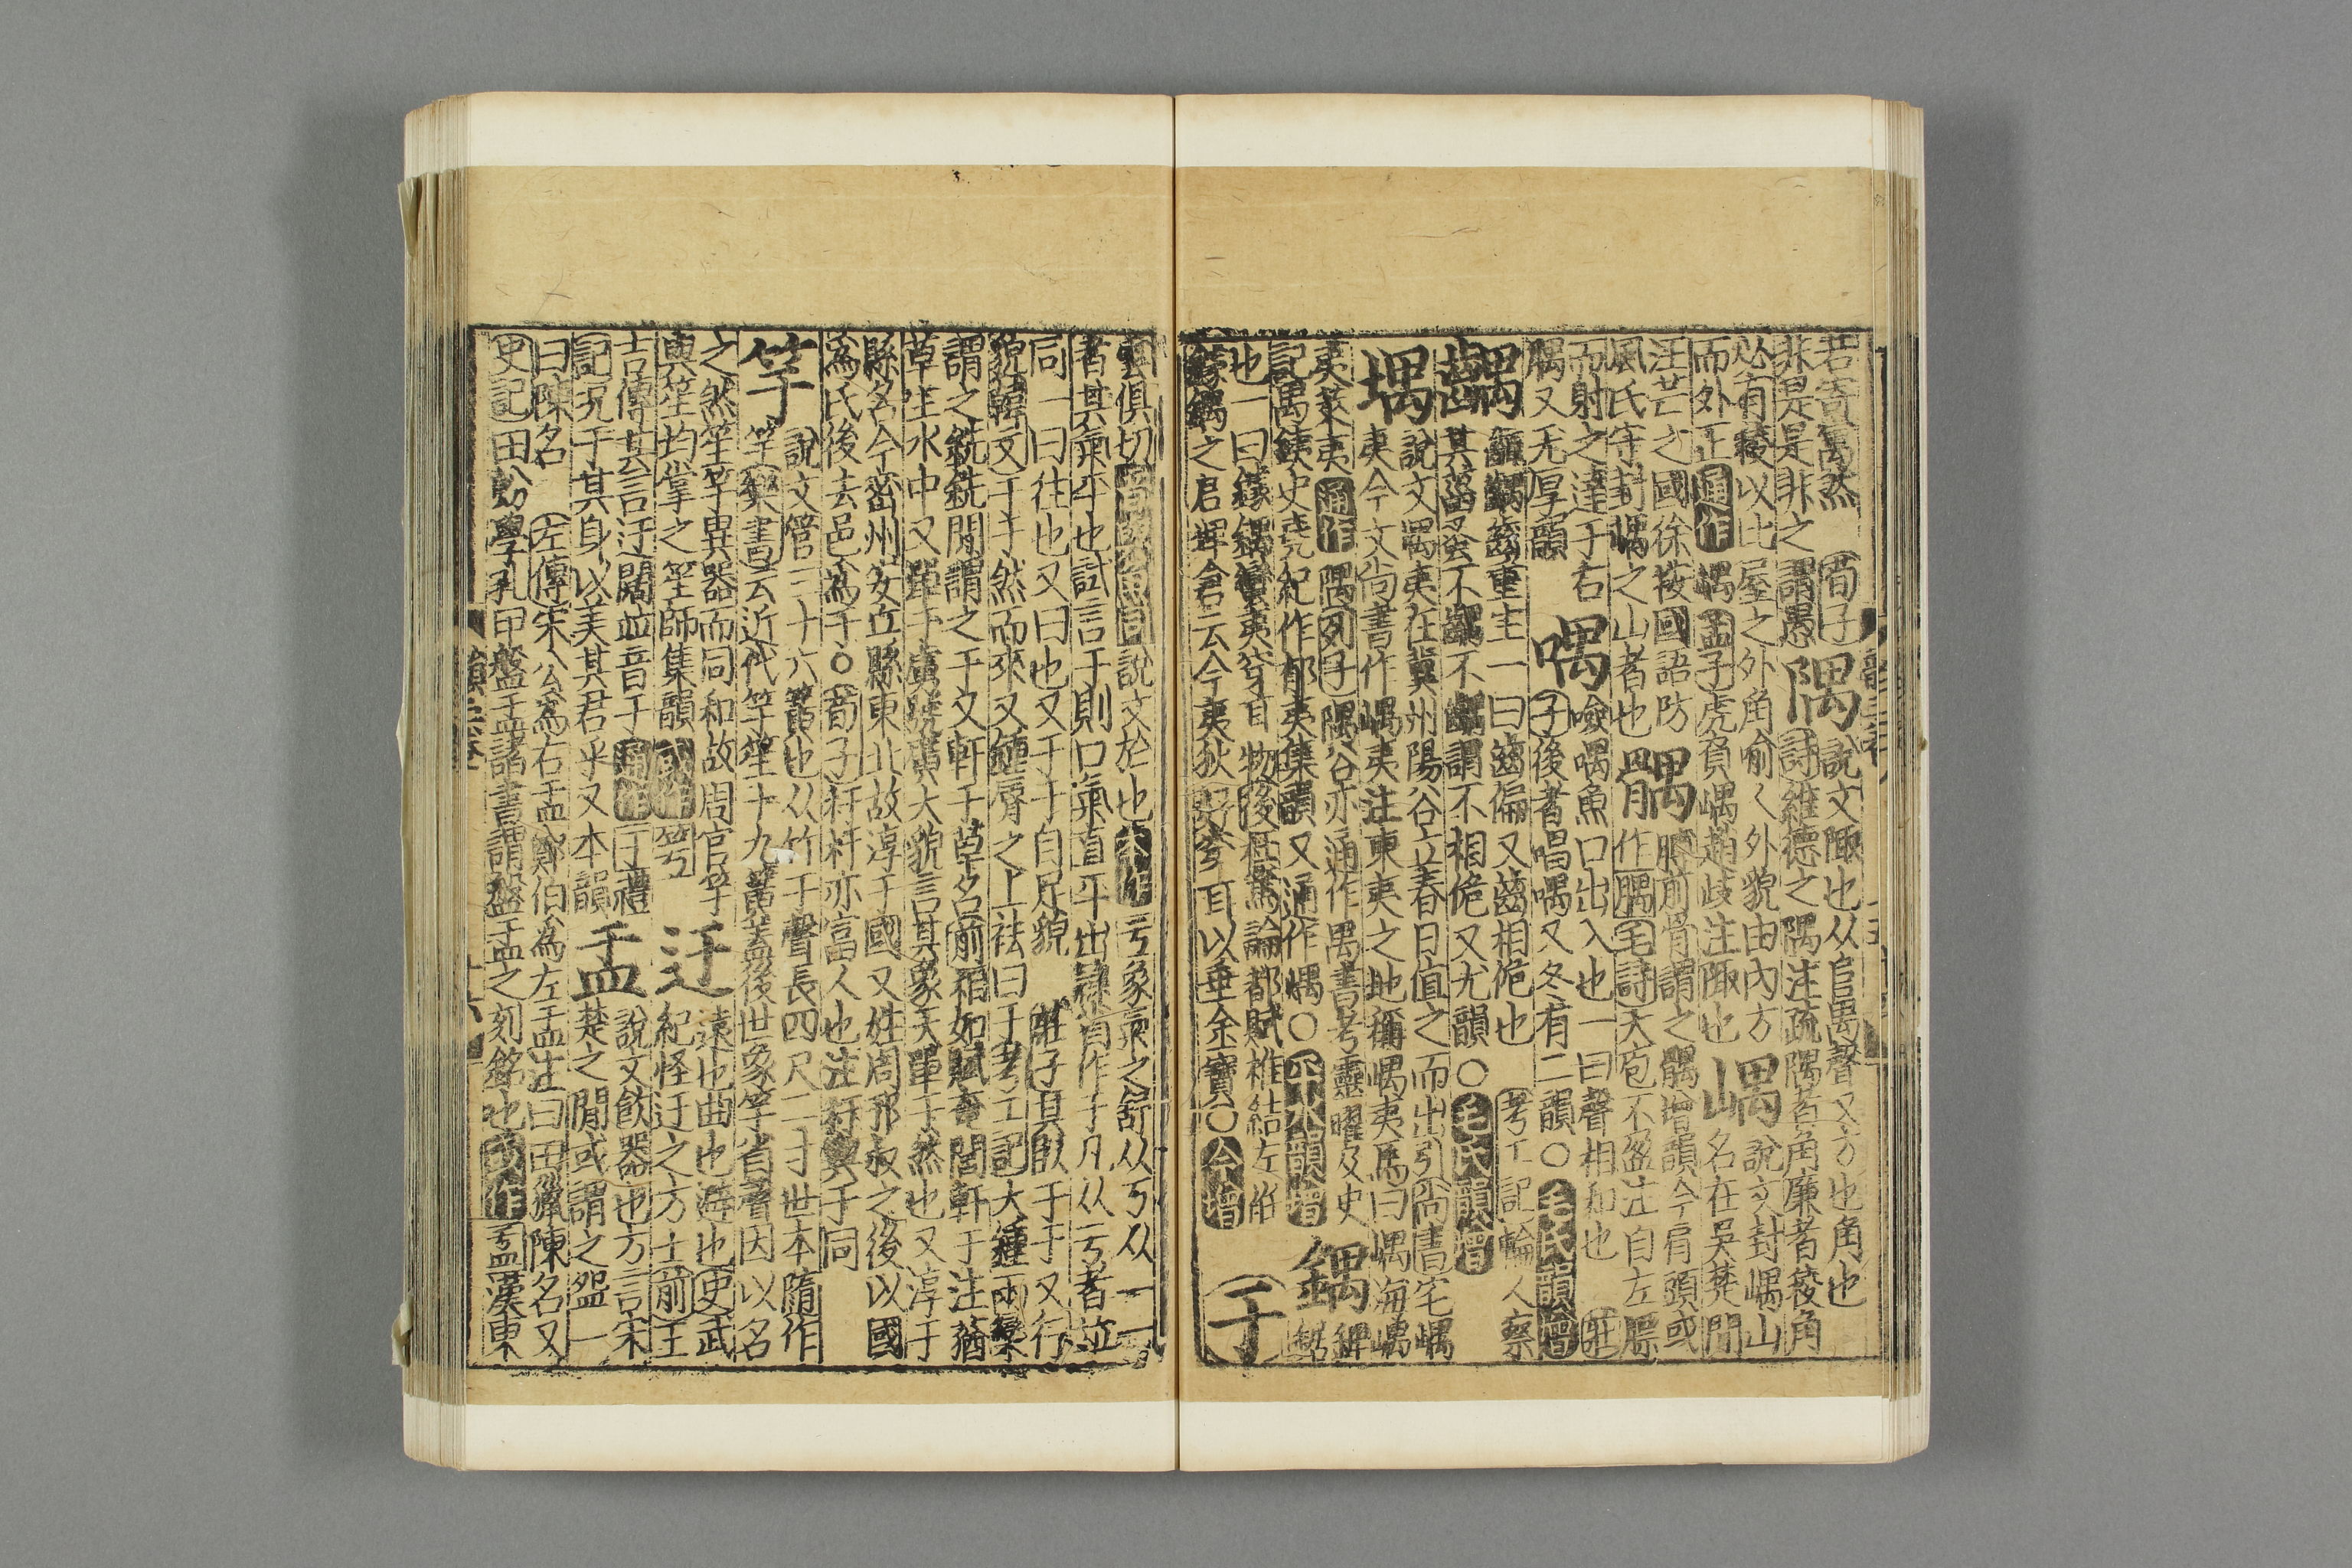 若寄寓然
非是是非之謂愚
隅
説文陬也从𨸏禺聲又方也角也
荀子
詩維德之隅注疏隅者角廉者稜角
必有稜以比屋之外角喻人外貌由内方
而外正
通作
嵎孟子虎負嵎趙歧注陬也
嵎
説文封嵎山
名在吳楚間
汪芒之國徐按國語防
風氏守封嵎之山者也
髃
髆前骨謂之髃增韻今肩頭或
作腢毛詩大庖不盈注自左膘
而射之達于右
腢又尤厚韻
喁
噞喁魚口出入也一曰聲相和也
莊子後者唱喁又冬有二韻○
毛氏韻增
齵
齱齵齒重生一曰齒偏又齒相佹也
考工記輪人察
其菑蚤不齵不齵謂不相佹又尤韻○
毛氏韻增
堣
説文堣夷在冀州陽谷立春日值之而出引尚書宅嵎
夷今文尚書作嵎夷注東夷之地稱嵎夷馬曰嵎海嵎
夷萊夷
通作
隅列子隅谷亦通作禺書考靈曜及史
記禺銕史堯紀作郁夷集韻又通作嵎○
不水韻增
鍝
錍鍝鋸
也一曰鐻鍝蠻夷穿耳物後杜篤論都賦椎結左衽
鐻鍝之君
云今夷狄好穿耳以垂金寶○
今增
于
雲俱切
音與魚同
説文於也
本作
亏象氣之舒从丂从一一
者其氣平也試言于則口氣直平出隸省作于凡从亏者並
同一曰往也又曰也又于于自足貌
莊子其臥于于又行
貌韓文于于然而來又鍾脣之上袪曰于考工記大鍾兩欒
謂之銑銑間謂之于又軒于草名前相如賦奄閭軒于注蕕
草生水中又單于廣
廣大貌言其象天單于然也又淳于
縣名今密州安丘縣東北故淳于國又姓周邘叔之後以國
爲氏後去邑爲于○荀子杅杅亦富人也注杅與于同
竽
説文管三十六簧也从竹于聲長四尺二寸世本隨作
竽樂書云近代竽笙十九簧蓋後世象竽省聲因以名
之然笙竽異器而同和故周官竽
與笙均掌之笙師集韻
或作
竽
迂
遠也曲也迃也史武
紀怪迂之方士前王
吉傳其言迂闊並音于
通作
于禮
記況于其身以美其君乎又本韻
盂
説文飲器也方言宋
楚之間或謂之盌一
曰陳名
左傳宋公爲右盂鄭伯爲左盂注曰田獵陳名又
史記田蚡學孔甲盤盂諸書謂盤盂之刻銘也
或作
䀁漢東